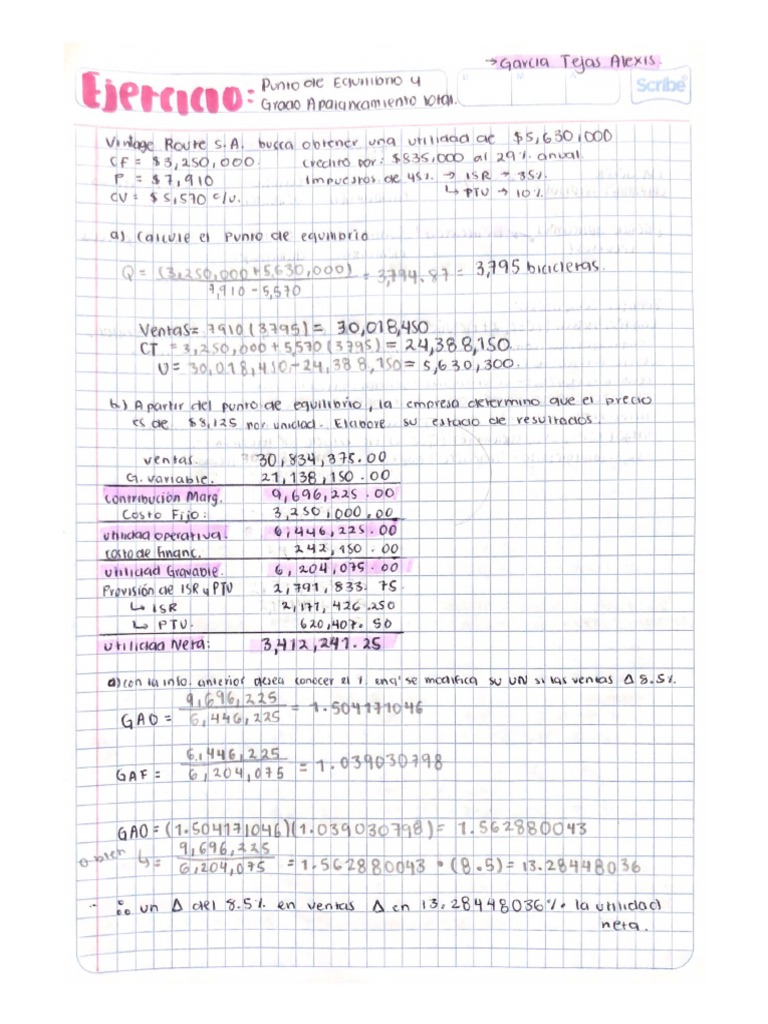 → García Tejas Alexis.
Ejercicio: Punto de Equilibrio y
Grado Apalancamiento total.
Scribe
Vintage Route S.A. busca obtener una utilidad de $5,630,000
CF = $3,250,000. credito por: $835,000 al 29% anual.
P = $7,910 Impuestos de 45% → ISR → 35%
CV = $5,570 c/u. ↳ PTU → 10%
a) Calcule el punto de equilibrio
Q = (3,250,000 + 5,630,000) = 3,794.87 = 3,795 bicicletas.
7,910 - 5,570
Ventas = 7910 (3795) = 30,018,450
CT = 3,250,000 + 5,570 (3795) = 24,388,150
U = 30,018,450 - 24,388,150 = 5,630,300.
b.) A partir del punto de equilibrio, la empresa determino que el precio
es de $8,125 por unidad. Elabore su estado de resultados.
ventas. 30,834,375.00
G. variable. 21,138,150.00
Contribución Marg. 9,696,225.00
Costo Fijo: 3,250,000.00
utilidad operativa. 6,446,225.00
costo de financ. 242,150.00
utilidad Gravable. 6,204,075.00
Provisión de ISR y PTU 2,791,833.75
↳ ISR 2,171,426.250
↳ PTU. 620,407.50
utilidad Neta: 3,412,241.25
a) con la info. anterior desea conocer el % enq' se modifica su UN si las ventas Δ 8.5%
9,696,225
GAO = = 1.504171046
6,446,225
6,446,225
GAF = = 1.039030798
6,204,075
GAO = (1.504171046)(1.039030798) = 1.562880043
o bien ↳ = 9,696,225 = 1.562880043 • (8.5) = 13.28448036
6,204,075
∴ un Δ del 8.5% en ventas Δ en 13.28448036% la utilidad
neta.